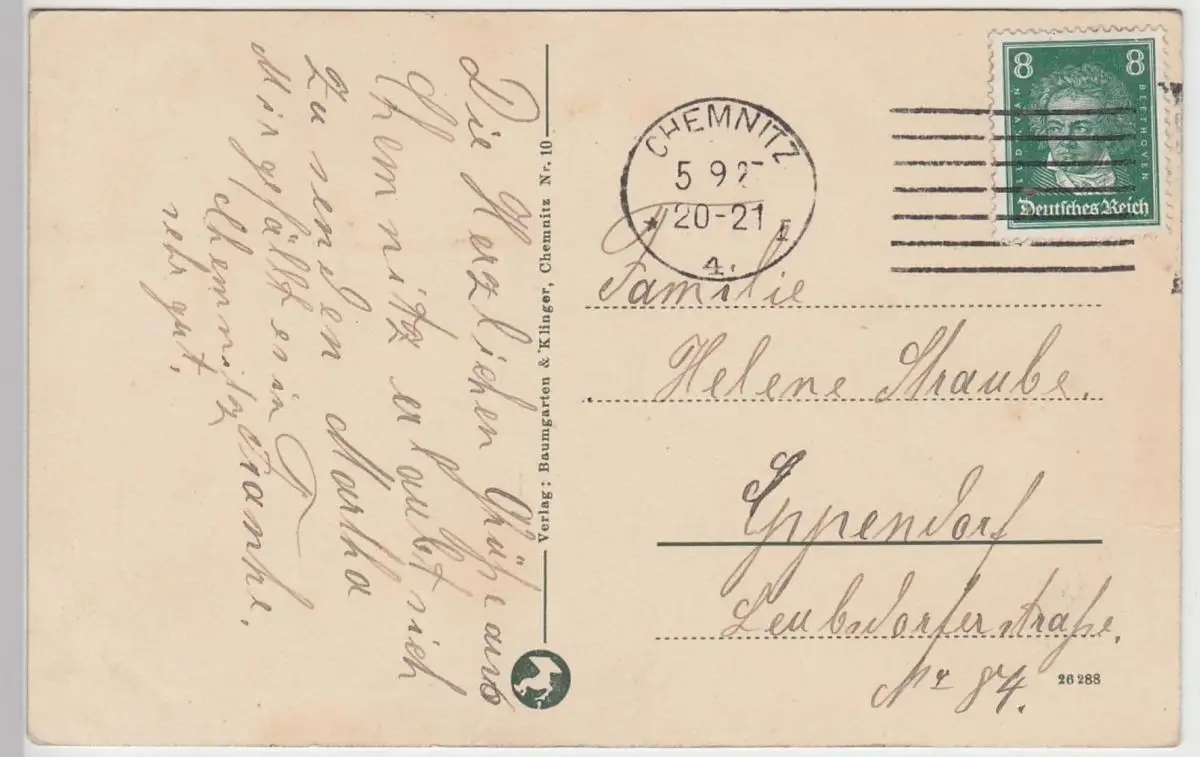 Die Herzlichen Grüße aus
Chemnitz erlaubt sich
zu senden Martha
Mir gefällt es in
Chemnitz
sehr gut.
Verlag: Baumgarten & Klinger, Chemnitz Nr. 10
CHEMNITZ
5 9 2
20-21
4.
8 8
LUDW. VAN BEETHOVEN
Deutsches Reich
Familie
Helene Straube.
Eppendorf
Leubsdorferstraße.
Nr 84.
26 288